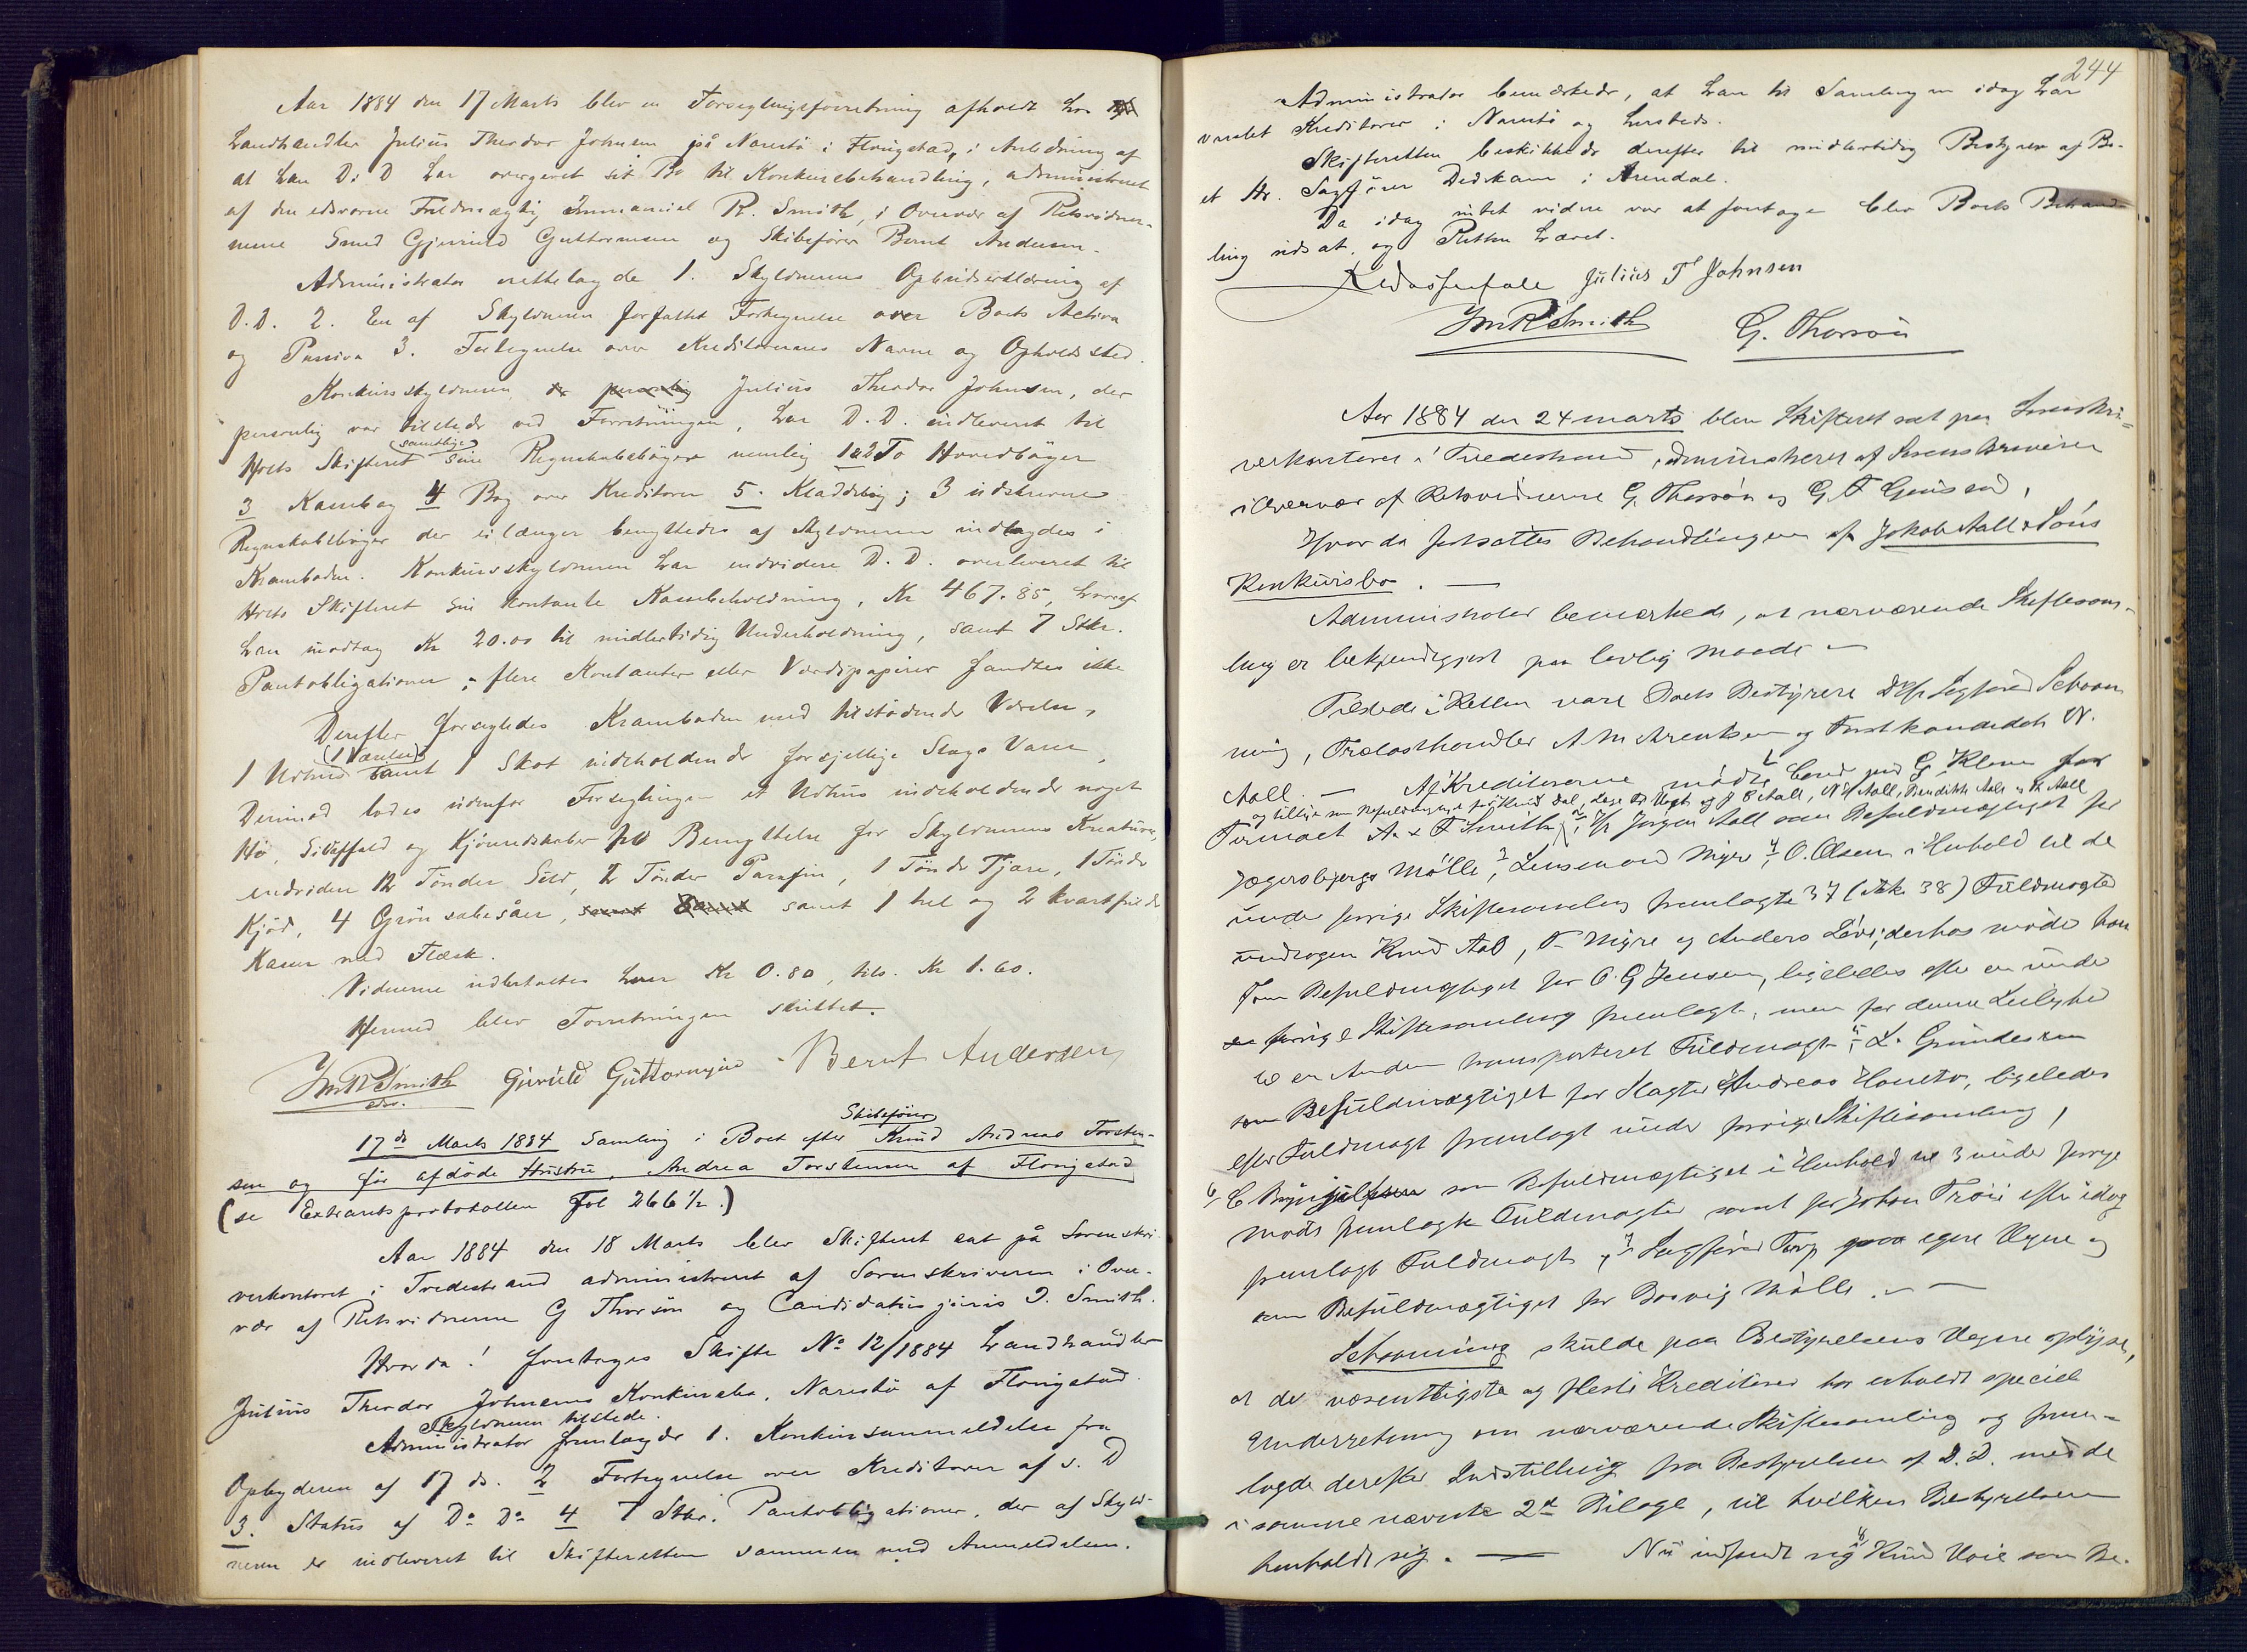 Aar 1884 den 17 Marts blev en Forseglingsforretning afholdt hos
Landhandler Julius Theodor Johnsen på Narestø i Flangstad, i Anledning af
at han D: D har overgivet sit Bo til Konkursbehandling, administreret
af den edsvorne Fuldmægtig Immanuel R. Smith, i Overvær af Retsvidner-
nene Smed Gjeruld Guttormsen og Skibsfører Bernt Andersen.
Administrator rettelagde 1. Skyldnerens Opbudserklæring af
D.D. 2. En af Skyldneren forfattet Fortegnelse over Boets Activa
og Passiva 3. Fortegnelse over Kreditorernes Navne og Opholdssted.
Konkursskyldneren Julius Theodor Johnsen, der
personlig var tilstede ved Forretningen, har D.D. indleveret til
Hrets Skifteret (samtlige) sine Regnskabsbøger nemlig 1&2 To Hovedbøger
3 Kassebog 4 Bog over Kreditorer 5. Kladdebog; 3 udskrevne
Regnskabsbøger der ei længer benyttedes af Skyldneren indlagdes i
Kramboden. Konkursskyldneren har endvidere D.D. overleveret til
Hrets Skifteret sin kontante Kassebeholdning, Kr 467.85, hvoraf
han modtog Kr 20.00 til midlertidig Underholdning, samt 7 Stkr.
Pantobligationer; flere Kontanter eller Værdipapirer fandtes ikke
Derefter forsegledes Kramboden med tilstødende Værelse,
1 Udhus (1 Værelse) samt 1 Skot indeholdende forskjellige Slags Varer,
Derimod lodes udenfor Forseglingen et Udhus indeholdende noget
Hø, Sildaffald og Kjøreredskaber til Benyttelse for Skyldnerens Kreaturer,
endvidere 12 Tønder Sild, 2 Tønder Parafin, 1 Tønde Tjære, 1 Tønde
Kjød, 4 Grønsæbesåer, samt 1 hel og 2 kvartfulde
Kasser med Flæsk.
Vidnerne udbetaltes hver Kr 0.80, tils. Kr 1.60.
Hermed blev Forretningen sluttet.
ImRSmith Gjeruld Guttormsen Bernt Andersen
edsv.
17de Marts 1884 Samling i Boet efter Skibsfører Knud Andreas Torsten-
sen og før afdøde Hustru, Andrea Torstensen af Flangstad
(se Extraretsprotokollen Fol 266 1/2.)
Aar 1884 den 18 Marts blev Skifteret sat på Sorenskri-
verkontoret i Tvedestrand administreret af Sorenskriveren i Over-
vær af Retsvidnerne G Thorsøn og Candidatus juris J. Smith.
Hvorda! foretoges Skifte No 12/1884 Landhandler
Julius Theodor Johnsens Konkursbo, Narestø af Flangstad.
Skyldneren tilstede.
Administrator fremlagde 1. Konkursanmeldelse fra
Opbyderen af 17 ds. 2 Fortegnelse over Kreditorer af s. D
3. Status af Do Do 4 7 Stkr. Pantobligationer, der af Skyld-
neren er indleveret til Skifteretten sammen med Anmeldelsen.
244
Administrator bemærkede, at han til Samlingen idag har
varslet Kreditorer i Narestø og Lyngsteds.
Skifteretten beskikkede derefter til midlertidig Bestyrer af Bo-
et Hr. Sagfører Dedekam i Arendal.
Da idag intet videre var at foretage blev Boets Behand-
ling udsat, og Retten hævet.
Julius T Johnsen
ImRSmith G. Thorsøn
Aar 1884 den 24 marts blev Skifteret sat paa Sorenskri-
verkontoret i Tvedestrand, administreret af Sorenskriveren
i Overvær af Retsvidnerne G. Thorsøn og G. F.
Hvorda fortsattes Behandlingen af Jakob Aall & Søns
Konkursbo. —
Administrator bemærkede, at nærværende Skiftesam-
ling er bekjendtgjort paa lovlig Maade —
Tilstede i Retten vare Boets Bestyrere D'Hr Sagfører Schoon
ning, Trælasthandler A M Arentsen og Forstkandidat N.
Aall. — Af Kreditorerne mødte 1 G. Klem for
og tillige som Befuldmægtiget for Dal, Læge Vogt og J C Aall, N Aall, Benedikte Aall N Aall
Firmaet A & F Smith, 2 Hr Jørgen Aall som Befuldmægtiget for
Jægersbjergs Mølle, 3 Lensmand Nigre, 4 O. Olsen i Henhold til de
under forrige Skiftesamling fremlagte 37 (Stk. 38) Fuldmagter
undtagen Knud Aas, F. Nigre og Anders Løvs; derhos møder han
som Befuldmægtiget for O. G Jensen, ligeledes efter en under
forrige Skiftesamling fremlagt, men for denne Leilighed
til en Anden transporteret Fuldmagt 5 L. Grundesen
som Befuldmægtiget for Slagter Andreas Hauets, ligeledes
efter Fuldmagt fremlagt under forrige Skiftesamling,
6 C. Brynjulfsen som Befuldmægtiget i Henhold til 3 under forrige
Møde fremlagte Fuldmagter samt for Johan efter idag
fremlagt Fuldmagt, 7 Sagfører Torp paa egne Vegne og
som Befuldmægtiget for Bosvig Mølle. —
Schooning skulde paa Bestyrelsens Vegne oplyse,
at de væsentligste og fleste Kreditorer har erholdt speciel
Underretning om nærværende Skiftesamling og frem-
lagde derefter Indstilling fra Bestyrelsen af D.D. med de
i samme nævnte 2de Bilage, til hvilken Bestyrelsen
henholdt sig. — Nu indfandt sig 8 Knud Voie som Be-